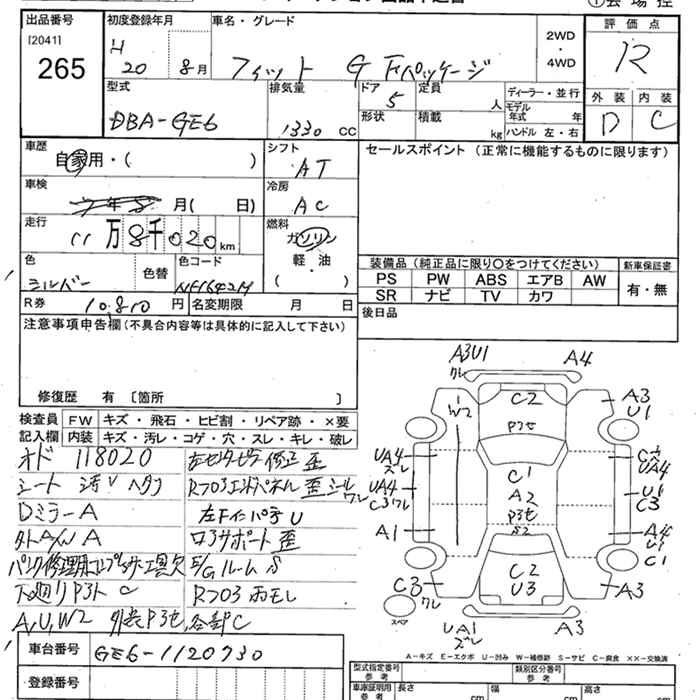 出品番号
[2041]
265
初度登録年月
H
20 8月
車名・グレード
フィット G Fパッケージ
2WD
・
4WD
評価点
R
外装 内装
D C
型式
DBA-GE6
排気量
1330 CC
ドア
5
形状
定員
人
積載
kg
ディーラー・並行
モデル年式 年
ハンドル 左・右
車歴
自家用・( )
シフト
AT
セールスポイント (正常に機能するものに限ります)
車検
月( 日)
冷房
AC
走行
11万8千020km
燃料
ガソリン
軽・油
( ・ )
色
シルバー
色替
色コード
NH642M
装備品 (純正品に限り○をつけてください)
新車保証書
PS PW ABS エアB AW
SR ナビ TV カワ
有・無
R券 10,810 円
名変期限 月 日
後日品
注意事項申告欄 (不具合内容等は具体的に記入して下さい)
修復歴 有 [箇所 ]
検査員
記入欄
FW キズ・飛石・ヒビ割・リペア跡・×要
内装 キズ・汚レ・コゲ・穴・スレ・キレ・破レ
オド 118020
シート
Dミラー A
外AXW A
パンク修理用コンプレッサー工具欠
下廻りPサビ C
A,U,W2 各部C
修正 歪
Rフロエンドパネル 歪 シールワレ
左Fインパチ U
ロアサポート 歪
E/Gルーム S
Rフロ雨モレ
A3U1
ワレ
A4
W2
C2
A3
U1
UA4
ズレ
UA4
C3 ワレ
A1
C1
A2
S2
UA4
U1
C3
A4
U1
C1
C3
ワレ
C2
U3
A3
スペア
UA1
ズレ
A3
A-キズ E-エクボ U-凹み W-補修跡 S-サビ C-腐食 XX-交換済
車台番号 GE6-1120730
登録番号
型式指定番号
参考
類別区分番号
参考
車庫証明用
参考
長さ cm
幅 cm
高さ cm